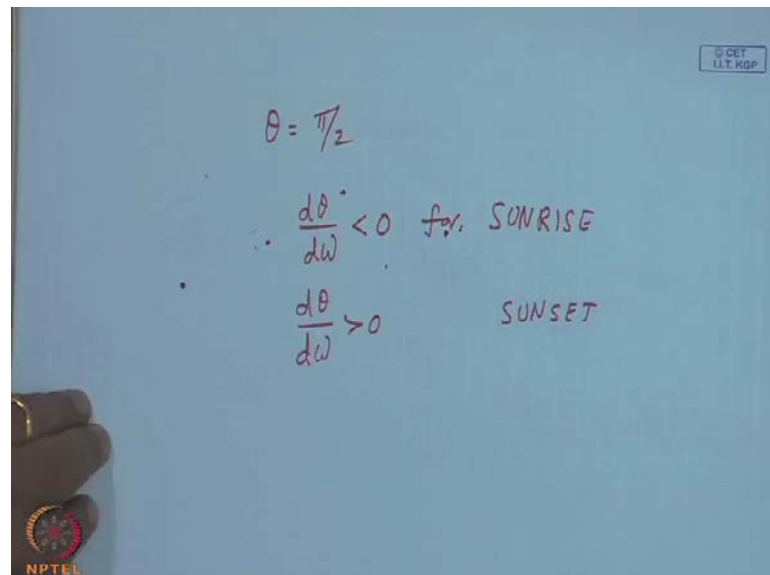 © CET
I.I.T. KGP
θ = π/2
dθ/dω < 0 for. SUNRISE
dθ/dω > 0 SUNSET
NPTEL